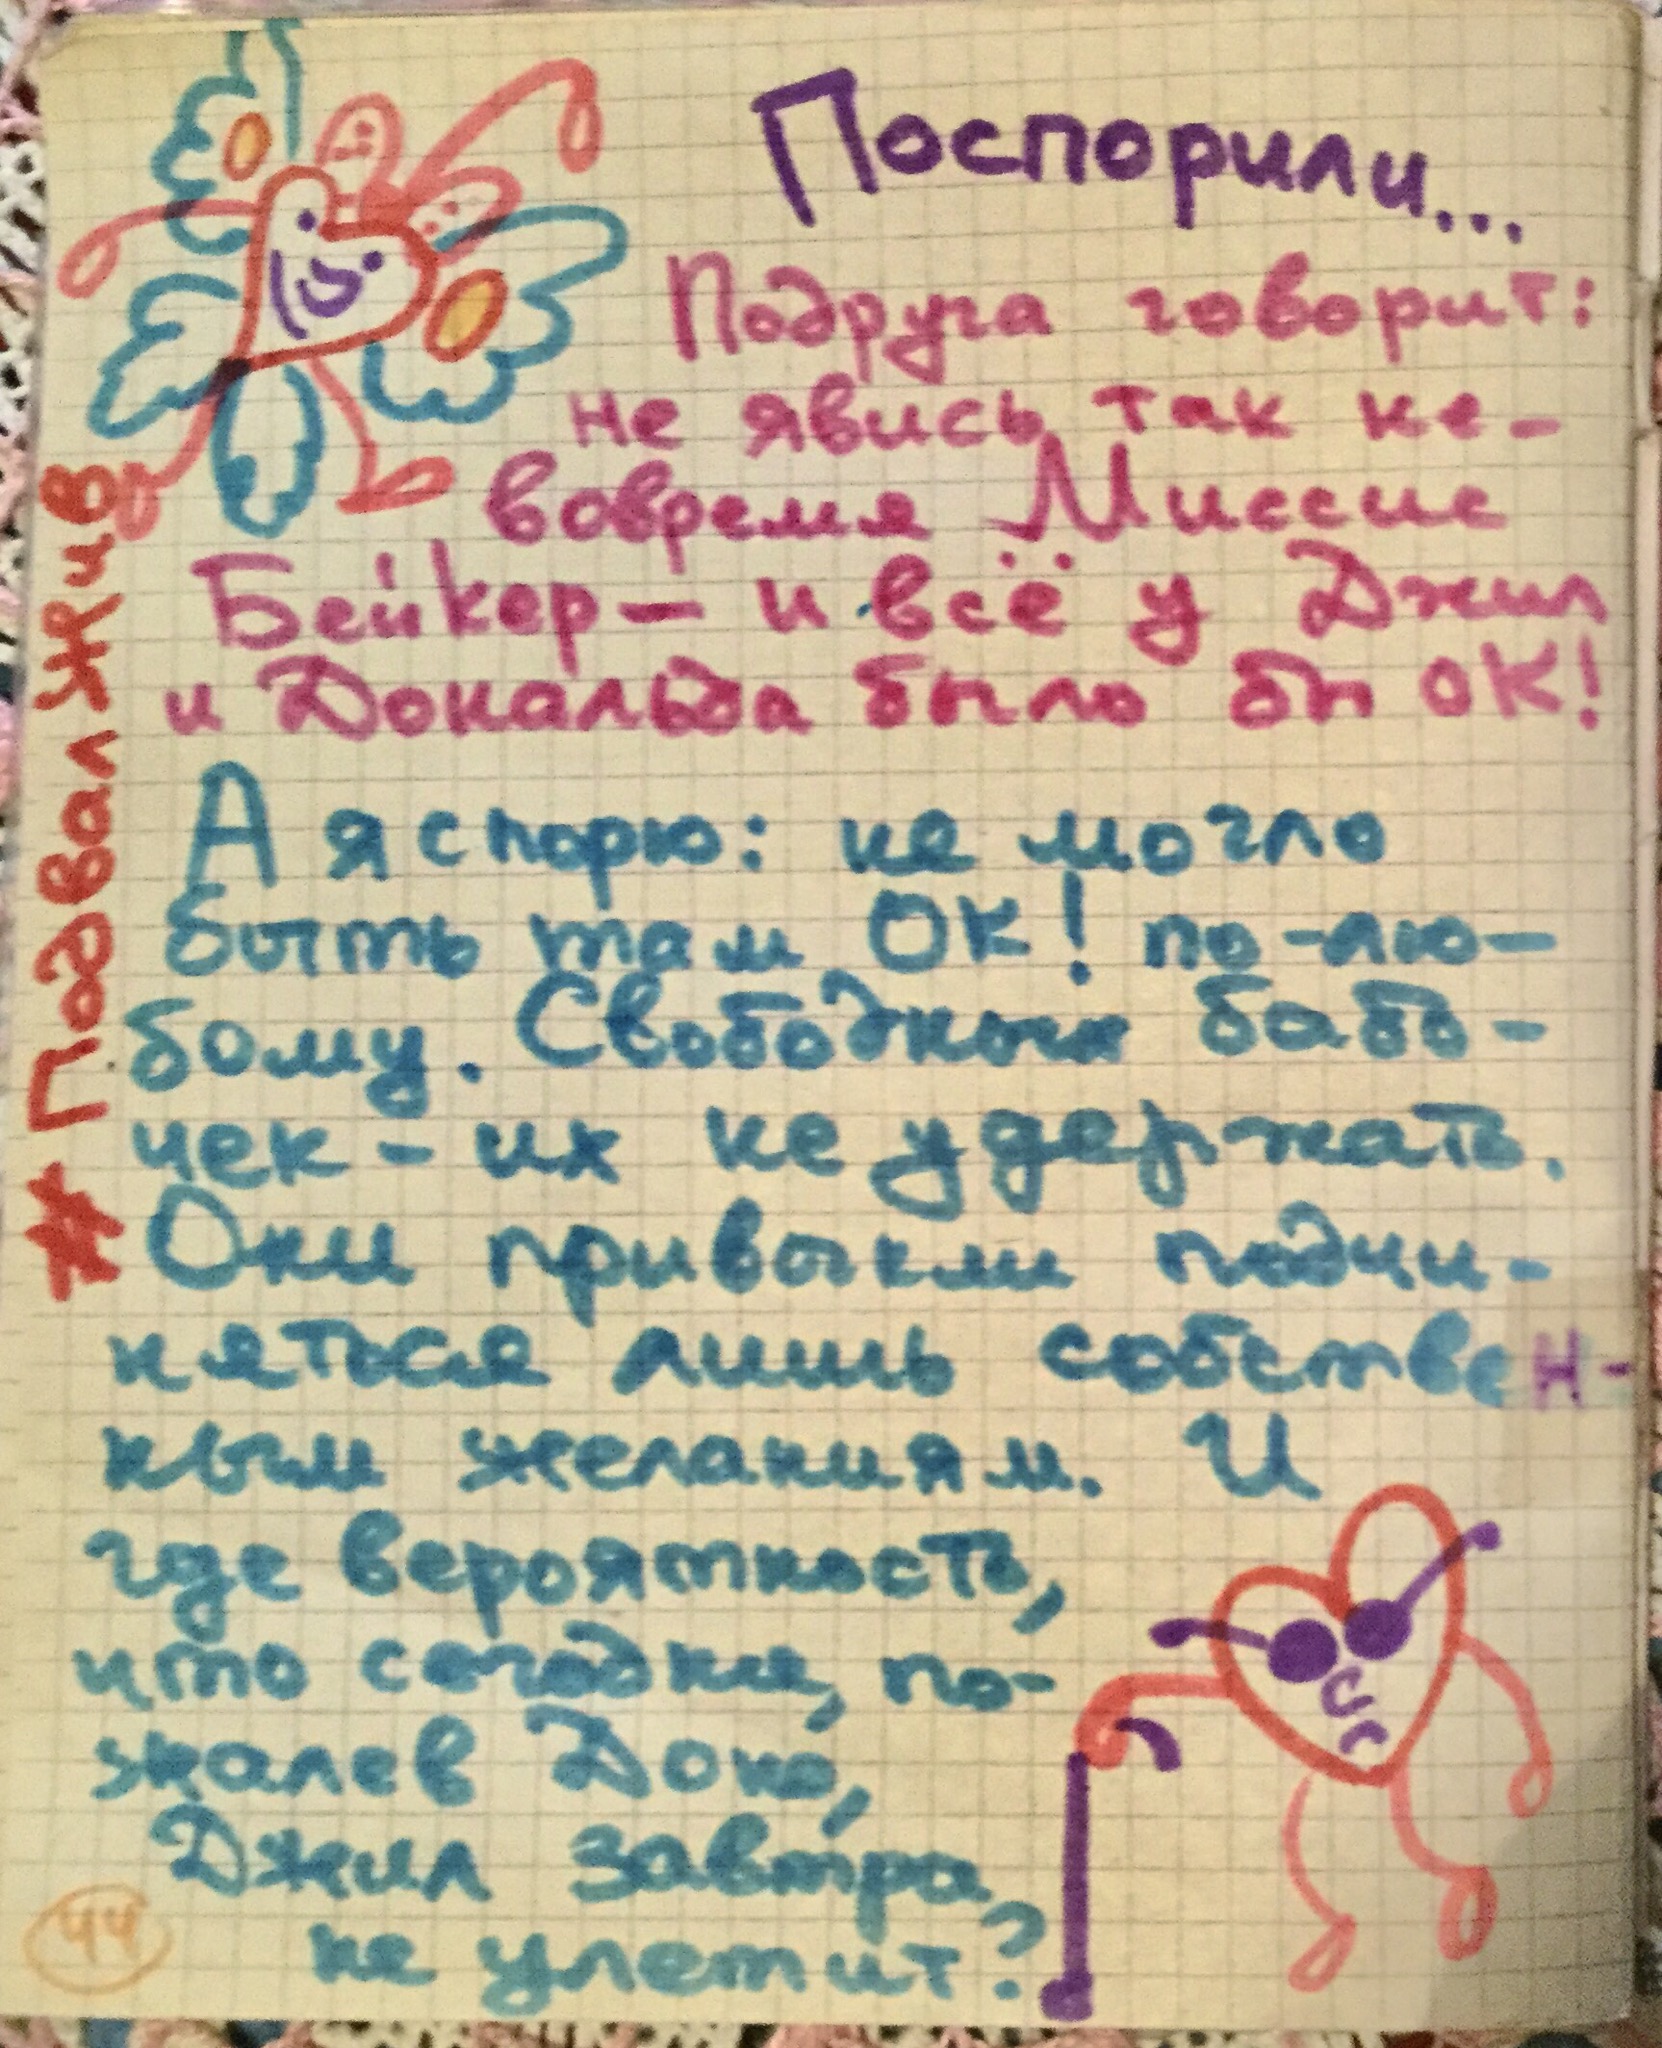 Поспорили...
Подруга говорит:
не явись так не-
вовремя Миссис
Бейкер — и всё у Джил
и Дональда было бы ОК!
А я спорю: не могло
быть там ОК! по-лю-
бому. Свободных бабо-
чек - их не удержать.
Они привыкли подчи-
няться лишь собствен-
ным желаниям. И
где вероятность,
что сегодня, по-
жалев Дона,
Джил завтра
не улетит?
# Подвал Жив
44